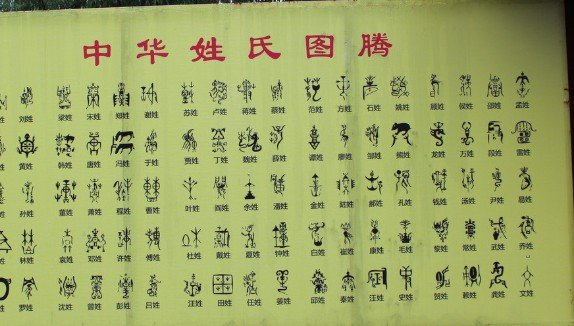 中华姓氏图腾
刘姓 梁姓 宋姓 郑姓 谢姓 苏姓 卢姓 蒋姓 蔡姓 范姓 方姓 石姓 姚姓 顾姓 侯姓 邵姓 孟姓
黄姓 韩姓 唐姓 冯姓 于姓 贾姓 丁姓 魏姓 薛姓 谭姓 廖姓 邹姓 熊姓 龙姓 万姓 段姓 雷姓
孙姓 董姓 萧姓 程姓 曹姓 叶姓 阎姓 余姓 潘姓 金姓 陆姓 郝姓 孔姓 钱姓 汤姓 尹姓 易姓
林姓 袁姓 邓姓 许姓 傅姓 杜姓 戴姓 夏姓 钟姓 白姓 崔姓 康姓 毛姓 黎姓 常姓 武姓 乔姓
罗姓 沈姓 曾姓 彭姓 吕姓 汪姓 田姓 任姓 姜姓 邱姓 秦姓 江姓 史姓 贺姓 赖姓 龚姓 文姓